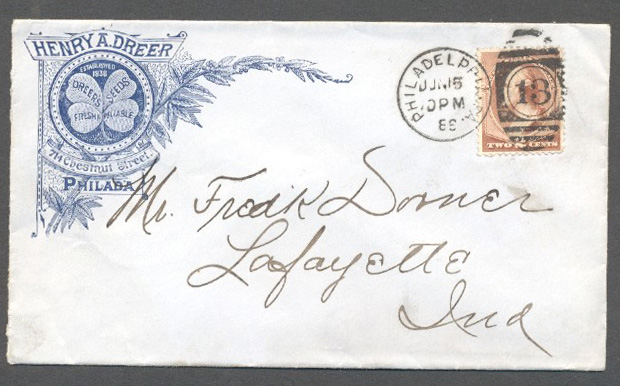 HENRY A. DREER
ESTABLISHED
1838
DREER'S SEEDS
FRESH RELIABLE
714 Chestnut Street.
PHILADA
PHILADELPHIA, PA.
JUN 15
PM
13
TWO CENTS
Mr. Fredk Dorner
Lafayette
Ind